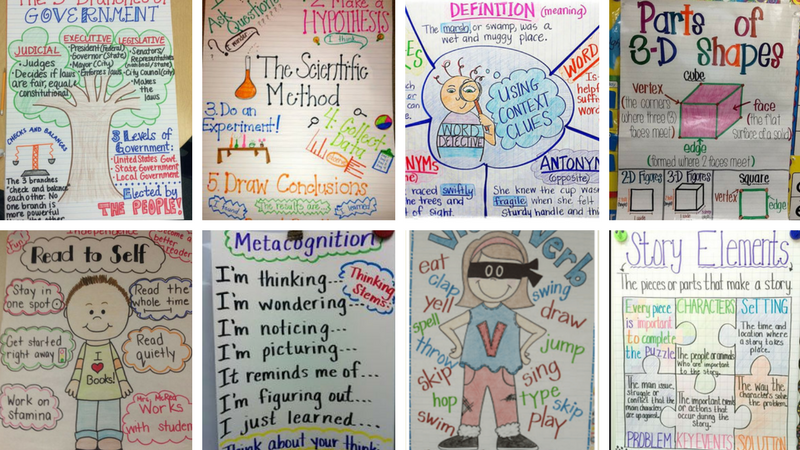 The 3 Branches of
GOVERNMENT
JUDICIAL
• Judges
• Decides if laws
are fair, equal,
constitutional
EXECUTIVE
• President (Federal)
• Governor (State)
• Mayor (City)
• Enforces laws
LEGISLATIVE
• Senators/
Representatives
(national/state)
• City Council (city)
• Makes
the
laws
CHECKS AND BALANCES
The 3 branches
"check and balance"
each other. No
one branch is
more powerful
3 Levels of
Government:
• United States Govt.
• State Government
• Local Government
Elected by
THE PEOPLE!
Ask
Questions
I wonder
2. Make a
HYPOTHESIS
I think...
The Scientific
Method
3. Do an
Experiment!
4. Collect
Data
5. Draw Conclusions
the results are
learned
DEFINITION (meaning)
The marsh, or swamp, was a
wet and muggy place.
WORD
USING
CONTEXT
CLUES
WORD
DETECTIVE
NYMS
raced swiftly
the trees and
of sight.
ANTONYM
(opposite)
She knew the cup was
fragile when she felt
Sturdy handle and th
Parts of
3-D Shapes
cube
vertex
(the corners
where three (3)
faces meet)
face
(the flat
surface of a solid)
edge
(formed where 2 faces meet)
2-D Figures
3-D Figures
square
vertex
edge
Read to Self
Stay in
one spot
Read the
whole time
Get started
right away
Read
quietly
I
Books!
Work on
Stamina
Works
with student
Metacognition
Thinking
Stems
I'm thinking...
I'm wondering...
I'm noticing...
I'm picturing...
It reminds me of...
I'm figuring out...
I just learned....
Think about your think
Verb
eat
clap
yell
spell
throw
skip
hop
swim
V
swing
draw
jump
sing
type
skip
play
Story Elements
The pieces or parts that make a story.
Every piece
is important
to complete
the Puzzle.
CHARACTERS
The people or animals
who are important
to the story.
SETTING
The time and
location where
a story takes
place.
The main issue,
struggle or
conflict that the
main characters
are upagainst.
PROBLEM
The important events
or actions that
occur during the
story.
KEY EVENTS
The way the
characters solve
the problem.
SOLUTION